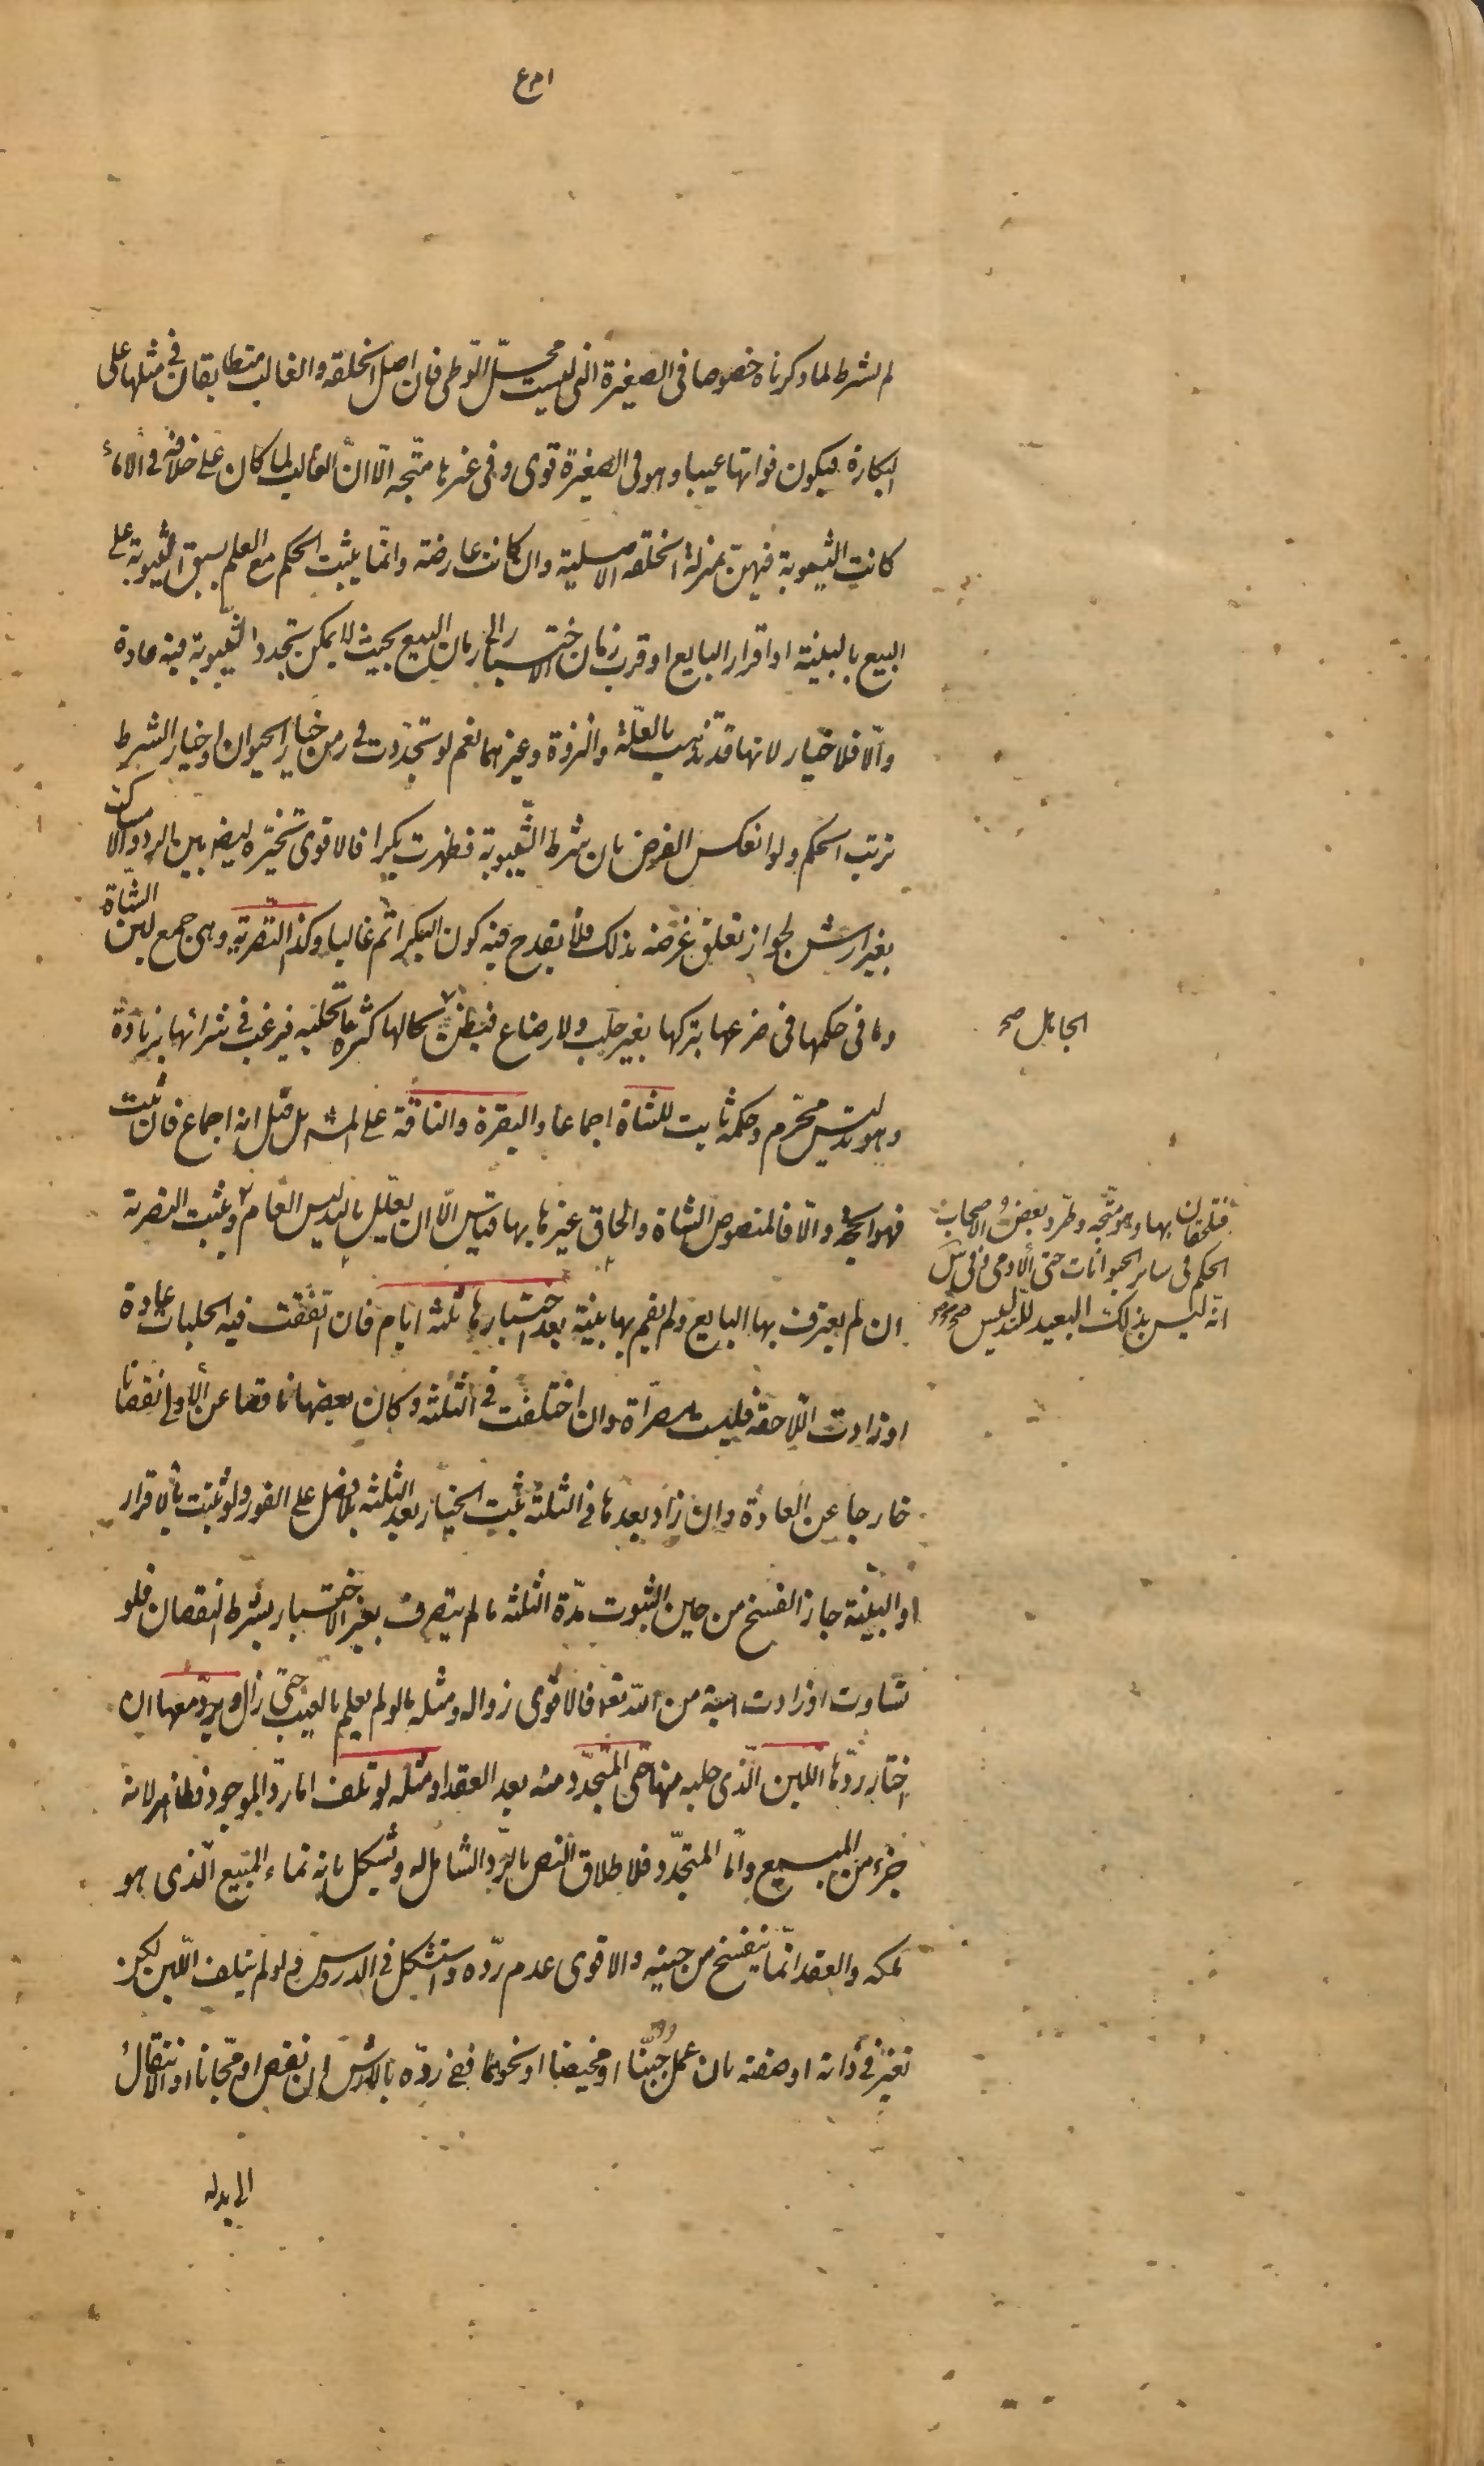 لم يشرط لما ذكرناه خصوصا فى الصغيرة التى ليست محل الوطى فان اصل الخلقة والغالب متطابقان فى مثلها على
البكارة فيكون فواتها عيبا وهو فى الصغيرة قوى وفى غيرها متّجه الّا انّ الغالب لما كان على خلافه فى الاماء
كانت الثيبوبة فيهن بمنزلة الخلقة الاصلية وان كانت عارضة وانّما يثبت الحكم مع العلم بسبق الثيبوبة على
البيع بالبينة او اقرار البايع او قرب زمان الاختبار الى زمان البيع بحيث لا يمكن تجدد الثيبوبة فيه عادة
والّا فلا خيار لانها قد تذهب بالعلّة والنزوة وغيرهما نعم لو تجدّدت فى زمن خيار الحيوان او خيار الشرط
ترتب الحكم ولو انعكس الفرض بان شرط الثّيبوبة فظهرت بكرا فالاقوى تخيّره ايضا بين الرد والامساك
بغير ارش لجواز تعلق غرضه بذلك فلا يقدح فيه كون البكر اتم غالبا وكذا التصرية وهى جمع لبن الشاة
وما فى حكمها فى ضرعها بتركها بغير حلب ولا رضاع فيظن بحالها كثرة ما تحلبه فيرغب فى شرائها بزيادة
الجاهل صح
وهو تدليس محرّم وحكمه ثابت للشاة اجماعا والبقرة والناقة على المشهور بل قيل انه اجماع فان ثبت
فهو الحجة والّا فالمنصوص الشاة والحاق غيرها بها قياس الّا ان يعلّل بالتدليس العام وتثبت التصرية
فيلحقان بها وهو متّجه وطرّد بعض الاصحاب
الحكم فى ساير الحيوانات حتى الادمى وفى س
انّه ليس بذلك البعيد للتدليس صح
ان لم يعترف بها البايع ولم تقم بها بينة بعد اختبارها ثلثة ايام فان اتفقت فيه الحلبات عادة
او زادت اللاحقة فليست مصرّاة وان اختلفت فى الثلثة وكان بعضها ناقصا عن الاولى نقصانا
خارجا عن العادة وان زاد بعدها فى الثلثة ثبت الخيار بعد الثلثة بلا فصل على الفور ولو ثبتت بالاقرار
او البيّنة جاز الفسخ من حين الثبوت مدّة الثلثة ما لم يتصرف بغير الاختبار بشرط النقصان فلو
تساوت او زادت هبة من اللّه تعالى فالاقوى زواله ومثله ما لو لم يعلم بالعيب حتى زال ويردّ معها ان
اختار ردّها اللبن الّذى حلبه منها حتى المتجدّد منه بعد العقد او مثله لو تلف اما ردّ الموجود فظاهر لانه
جزء من المبيع وامّا المتجدّد فلاطلاق النص بالرّد الشامل له ويشكل بانه نماء المبيع الّذى هو
ملكه والعقد انّما ينفسخ من حينه والاقوى عدم ردّه واستشكل فى الدروس ولو لم يتلف اللّبن لكن
تغيّر فى ذاته او صفته بان عمل جبنّا او مخيضا او نحوهما ففى ردّه بالارش ان نقص او مجّانا او الانتقال
الى بدله